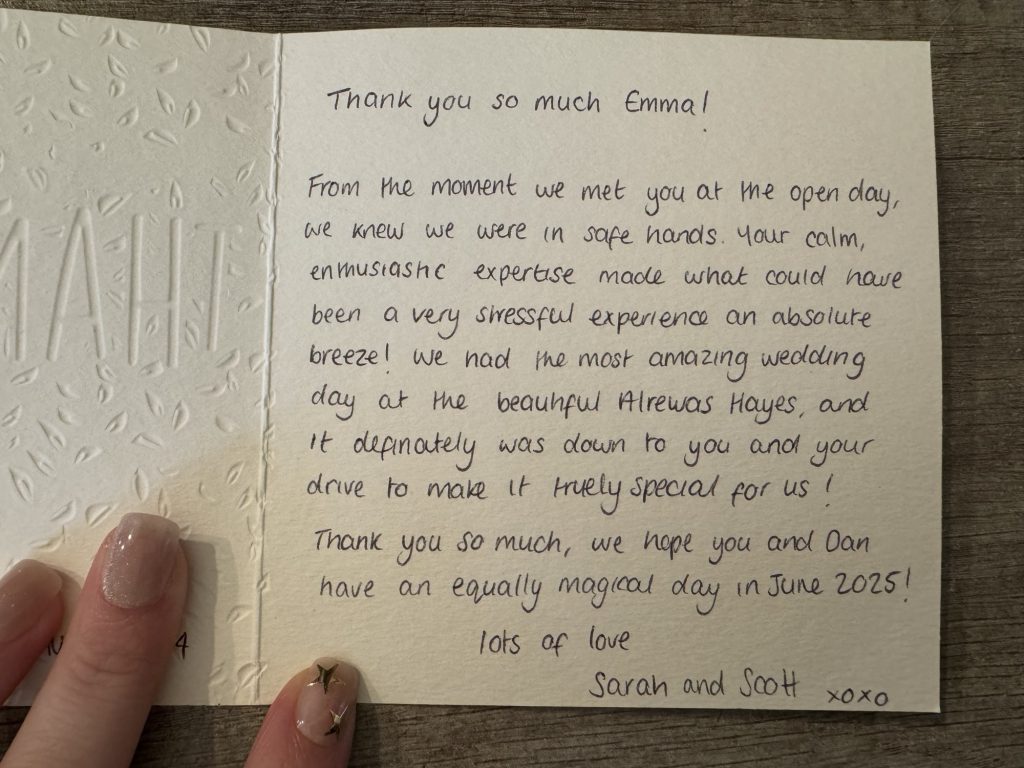 Thank you so much Emma!
From the moment we met you at the open day,
we knew we were in safe hands. Your calm,
enthusiastic expertise made what could have
been a very stressful experience an absolute
breeze! We had the most amazing wedding
day at the beautiful Alrewas Hayes, and
it definately was down to you and your
drive to make it truely special for us!
Thank you so much, we hope you and Dan
have an equally magical day in June 2025!
lots of love
Sarah and Scott xoxo
4